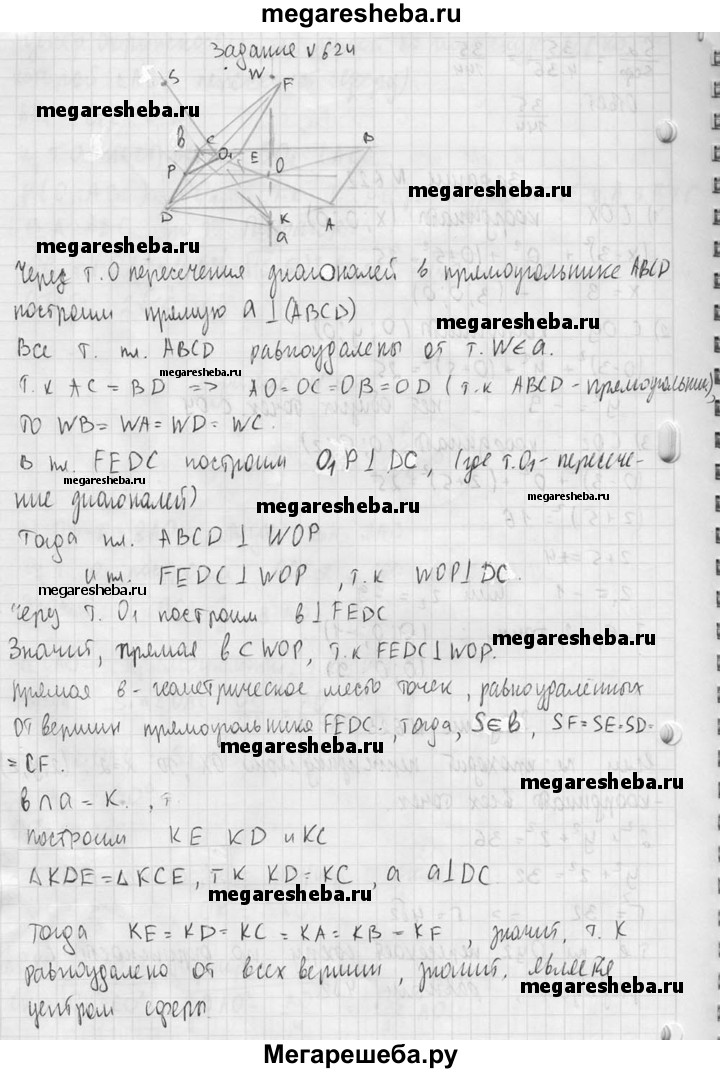 megaresheba.ru
Задание №624
S W F
megaresheba.ru
в C O₁ E B
P O
megaresheba.ru
D K A
а
megaresheba.ru
Через т. О пересечения диагоналей в прямоугольнике ABCD
построим прямую а ⊥ (ABCD)
Все т. пл. ABCD равноудалены от т. W∈а.
megaresheba.ru
Т.к AC = BD => AO=OC=OB=OD (т.к ABCD - прямоугольник),
то WB=WA=WD=WC.
В пл. FEDC построим O₁P⊥DC, (где т.O₁ - пересече-
megaresheba.ru megaresheba.ru
ние диагоналей) megaresheba.ru
Тогда пл. ABCD ⊥ WOP
и пл. FEDC ⊥ WOP, т.к WOP⊥DC.
megaresheba.ru
Через т. O₁ построим в⊥FEDC
megaresheba.ru
Значит, прямая в⊂WOP, т.к FEDC⊥WOP.
Прямая в - геометрическое место точек, равноудаленных
от вершин прямоугольника FEDC, тогда, S∈B, SF=SE=SD=
megaresheba.ru
= CF.
megaresheba.ru
в∩а = K., т
построим KE KD и KC
ΔKDE=ΔKCE, т к KD=KC, а а⊥DC
megaresheba.ru
Тогда KE=KD=KC=KA=KB=KF, значит, т. K
megaresheba.ru
равноудалено от всех вершин, значит, является
megaresheba.ru
центром сферы.
Мегарешеба.ру